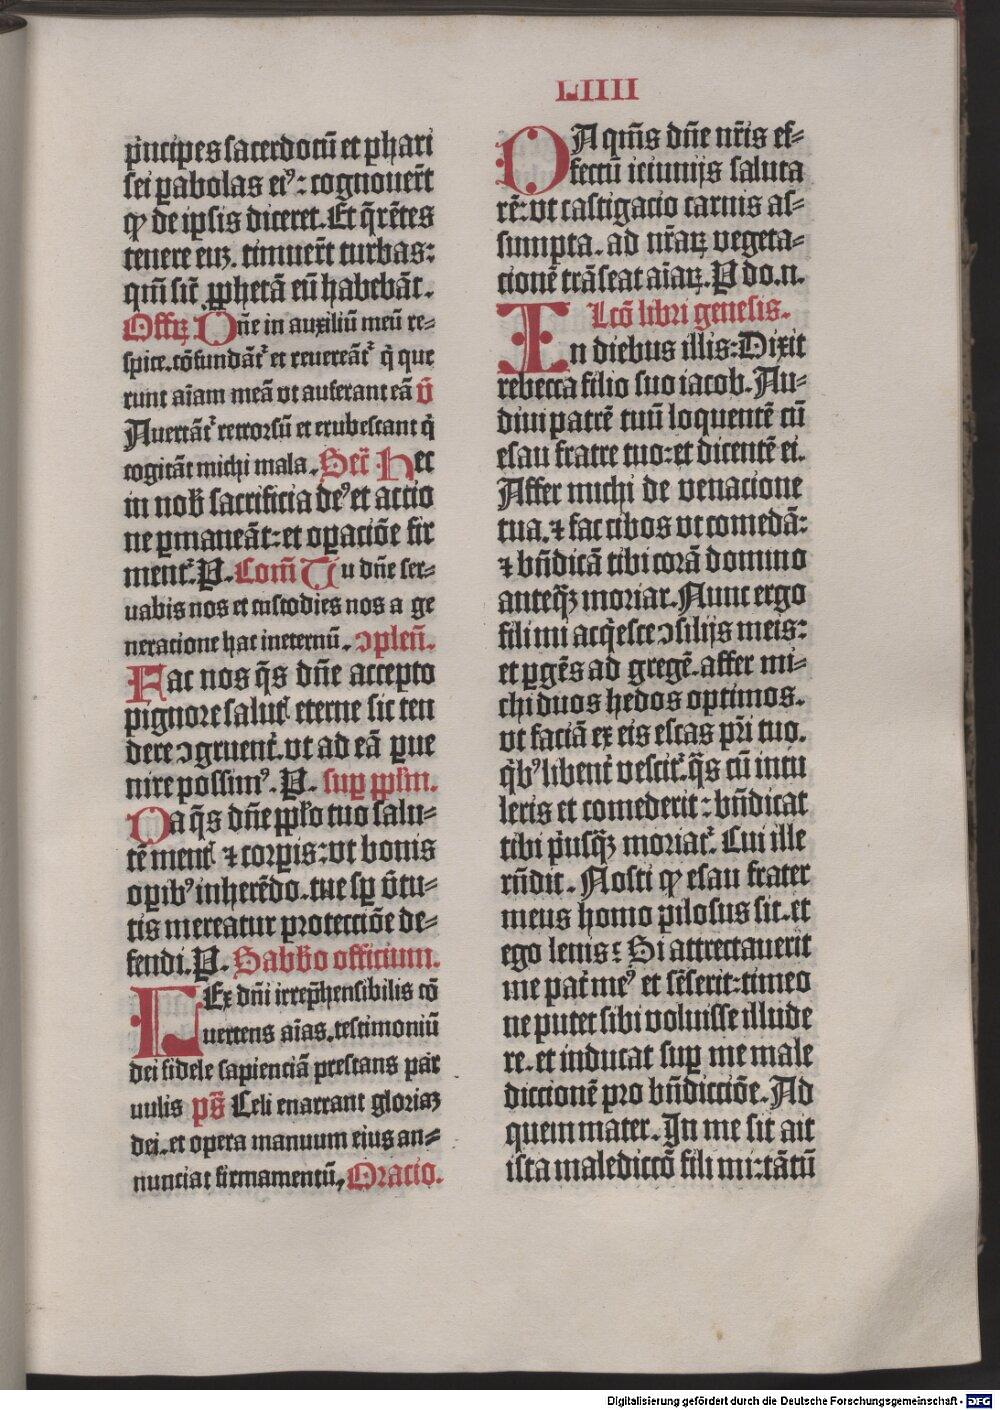 LIIII
p̄ncipes sacerdotū et phari
sei ꝑabolas eiꝰ: cognouer̄t
ꝙ de ipsis diceret. Et q̄rētes
tenere euꝫ. timuer̄t turbas:
qm̄ sic̄ ꝓphetā eū habebāt.
Offꝝ Dn̄e in auxiliū meū re-
spice. cōfundāt᷑ et reuereāt᷑ q̇ que
runt aīam meā vt auferant eā v̄
Auertāt᷑ retrorsū et erubescant q̇
cogitāt michi mala. Secr̄ Hec
in nob̄ sacrificia deꝰ et actio
ne ꝑmaneāt: et oꝑaciōe fir
ment᷑. P. Com̄ Tu dn̄e ser-
uabis nos et custodies nos a ge
neratione hac ineternū. ↄplen̄.
Fac nos q̄s dn̄e accepto
pignore salut᷑ eterne sic ten
dere ↄgruent᷑. vt ad eā ꝑue
nire possimꝰ. P. suꝑ ppl̄m.
Da q̄s dn̄e ppl̄o tuo salu-
tē ment᷑ ⁊ corꝑis: vt bonis
oꝑibꝰ inherēdo. tue sꝑ v̄tu-
tis mereatur protectiōe de-
fendi. P. Sabb̄o officium.
LEx dn̄i irrep̄hensibilis cō
uertens aīas. testimoniū
dei fidele sapienciā prestans par
uulis ps̄ Celi enarrant gloriaꝫ
dei. et opera manuum eius an-
nunciat firmamentū, Oracio.
DA qm̄s dn̄e nr̄is ef-
fectū ieiunijs saluta
rē: vt castigacio carnis as-
sumpta. ad nr̄aꝝ vegeta-
cionē trāseat aīaꝝ. P do. n.
Lcō libri genesis.
In diebus illis: Dixit
rebecca filio suo iacob. Au-
diui patrē tuū loquentē cū
esau fratre tuo: et dicentē ei.
Affer michi de venacione
tua. ⁊ fac cibos vt comedā:
⁊ bn̄dicā tibi corā domino
anteq̄ꝫ moriar. Nunc ergo
fili mi acq̇esce ↄsilijs meis:
et ꝑgēs ad gregē. affer mi-
chi duos hedos optimos.
vt faciā ex eis escas pr̄i tuo.
q̇bꝰ libent᷑ vescit᷑. q̄s cū intu
leris et comederit: bn̄dicat
tibi ṗusq̄ꝫ moriat᷑. Cui ille
rn̄dit. Nosti ꝙ esau frater
meus homo pilosus sit. et
ego lenis: Si attrectauerit
me pat᷑ meꝰ et sēserit: timeo
ne putet sibi voluisse illude
re. et inducat suꝑ me male
diccionē pro bn̄dicciōe. Ad
quem mater. In me sit ait
ista maledictō fili mi: tātū
Digitalisierung gefördert durch die Deutsche Forschungsgemeinschaft - DFG